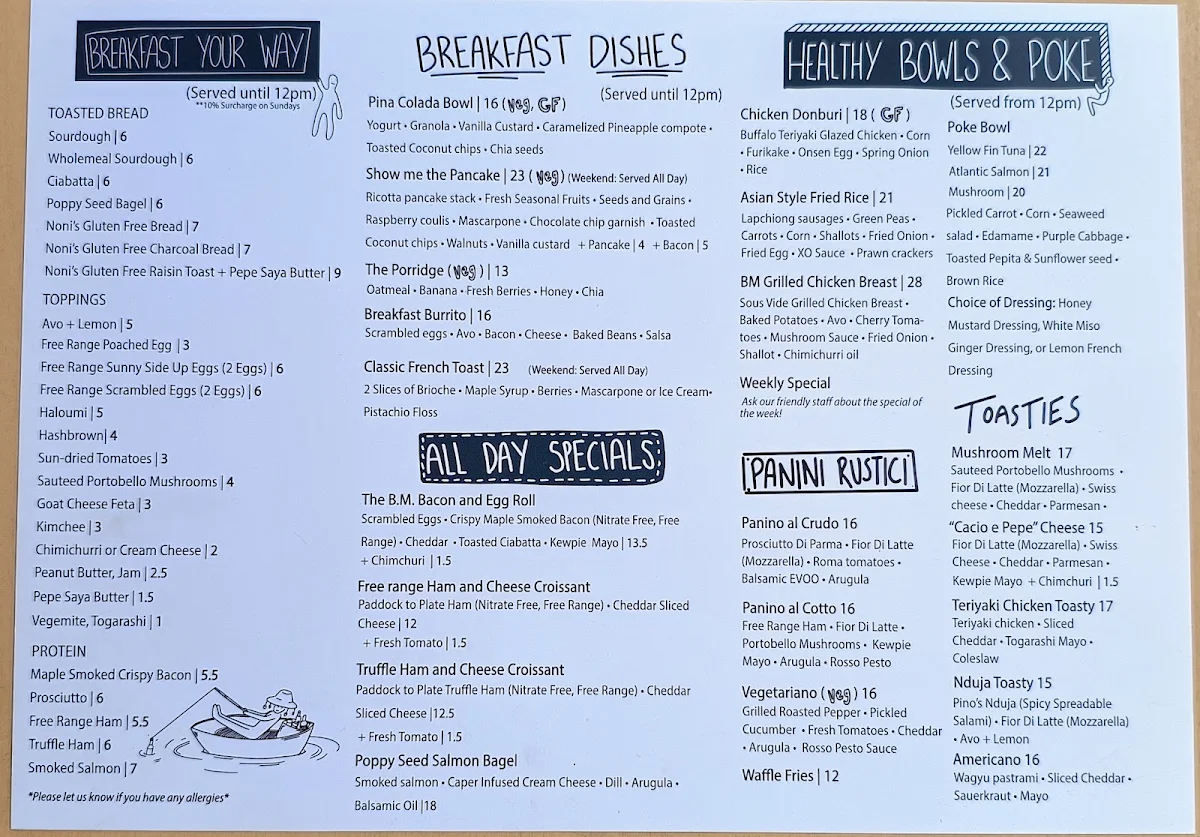 BREAKFAST YOUR WAY
(Served until 12pm)
**10% Surcharge on Sundays
TOASTED BREAD
Sourdough | 6
Wholemeal Sourdough | 6
Ciabatta | 6
Poppy Seed Bagel | 6
Noni's Gluten Free Bread | 7
Noni's Gluten Free Charcoal Bread | 7
Noni's Gluten Free Raisin Toast + Pepe Saya Butter | 9
TOPPINGS
Avo + Lemon | 5
Free Range Poached Egg | 3
Free Range Sunny Side Up Eggs (2 Eggs) | 6
Free Range Scrambled Eggs (2 Eggs) | 6
Haloumi | 5
Hashbrown| 4
Sun-dried Tomatoes | 3
Sauteed Portobello Mushrooms | 4
Goat Cheese Feta | 3
Kimchee | 3
Chimichurri or Cream Cheese | 2
Peanut Butter, Jam | 2.5
Pepe Saya Butter | 1.5
Vegemite, Togarashi | 1
PROTEIN
Maple Smoked Crispy Bacon | 5.5
Prosciutto | 6
Free Range Ham | 5.5
Truffle Ham | 6
Smoked Salmon | 7
*Please let us know if you have any allergies*
BREAKFAST DISHES
(Served until 12pm)
Pina Colada Bowl | 16 (Veg, GF)
Yogurt • Granola • Vanilla Custard • Caramelized Pineapple compote •
Toasted Coconut chips • Chia seeds
Show me the Pancake | 23 (Veg) (Weekend: Served All Day)
Ricotta pancake stack • Fresh Seasonal Fruits • Seeds and Grains •
Raspberry coulis • Mascarpone • Chocolate chip garnish • Toasted
Coconut chips • Walnuts • Vanilla custard + Pancake | 4 + Bacon | 5
The Porridge (Veg) | 13
Oatmeal • Banana • Fresh Berries • Honey • Chia
Breakfast Burrito | 16
Scrambled eggs • Avo • Bacon • Cheese • Baked Beans • Salsa
Classic French Toast | 23 (Weekend: Served All Day)
2 Slices of Brioche • Maple Syrup • Berries • Mascarpone or Ice Cream•
Pistachio Floss
ALL DAY SPECIALS
The B.M. Bacon and Egg Roll
Scrambled Eggs • Crispy Maple Smoked Bacon (Nitrate Free, Free
Range) • Cheddar • Toasted Ciabatta • Kewpie Mayo | 13.5
+ Chimichurri | 1.5
Free range Ham and Cheese Croissant
Paddock to Plate Ham (Nitrate Free, Free Range) • Cheddar Sliced
Cheese | 12
+ Fresh Tomato | 1.5
Truffle Ham and Cheese Croissant
Paddock to Plate Truffle Ham (Nitrate Free, Free Range) • Cheddar
Sliced Cheese |12.5
+ Fresh Tomato | 1.5
Poppy Seed Salmon Bagel
Smoked salmon • Caper Infused Cream Cheese • Dill • Arugula •
Balsamic Oil |18
HEALTHY BOWLS & POKE
(Served from 12pm)
Chicken Donburi | 18 ( GF )
Buffalo Teriyaki Glazed Chicken • Corn
• Furikake • Onsen Egg • Spring Onion
• Rice
Asian Style Fried Rice | 21
Lapchiong sausages • Green Peas •
Carrots • Corn • Shallots • Fried Onion •
Fried Egg • XO Sauce • Prawn crackers
BM Grilled Chicken Breast | 28
Sous Vide Grilled Chicken Breast •
Baked Potatoes • Avo • Cherry Toma-
toes • Mushroom Sauce • Fried Onion •
Shallot • Chimichurri oil
Weekly Special
Ask our friendly staff about the special of
the week!
Poke Bowl
Yellow Fin Tuna | 22
Atlantic Salmon | 21
Mushroom | 20
Pickled Carrot • Corn • Seaweed
salad • Edamame • Purple Cabbage •
Toasted Pepita & Sunflower seed •
Brown Rice
Choice of Dressing: Honey
Mustard Dressing, White Miso
Ginger Dressing, or Lemon French
Dressing
PANINI RUSTICI
Panino al Crudo 16
Prosciutto Di Parma • Fior Di Latte
(Mozzarella) • Roma tomatoes •
Balsamic EVOO • Arugula
Panino al Cotto 16
Free Range Ham • Fior Di Latte •
Portobello Mushrooms • Kewpie
Mayo • Arugula • Rosso Pesto
Vegetariano (Veg) 16
Grilled Roasted Pepper • Pickled
Cucumber • Fresh Tomatoes • Cheddar
• Arugula • Rosso Pesto Sauce
Waffle Fries | 12
TOASTIES
Mushroom Melt 17
Sauteed Portobello Mushrooms •
Fior Di Latte (Mozzarella) • Swiss
cheese • Cheddar • Parmesan •
"Cacio e Pepe" Cheese 15
Fior Di Latte (Mozzarella) • Swiss
Cheese • Cheddar • Parmesan •
Kewpie Mayo + Chimchuri | 1.5
Teriyaki Chicken Toasty 17
Teriyaki chicken • Sliced
Cheddar • Togarashi Mayo •
Coleslaw
Nduja Toasty 15
Pino's Nduja (Spicy Spreadable
Salami) • Fior Di Latte (Mozzarella)
• Avo + Lemon
Americano 16
Wagyu pastrami • Sliced Cheddar •
Sauerkraut • Mayo